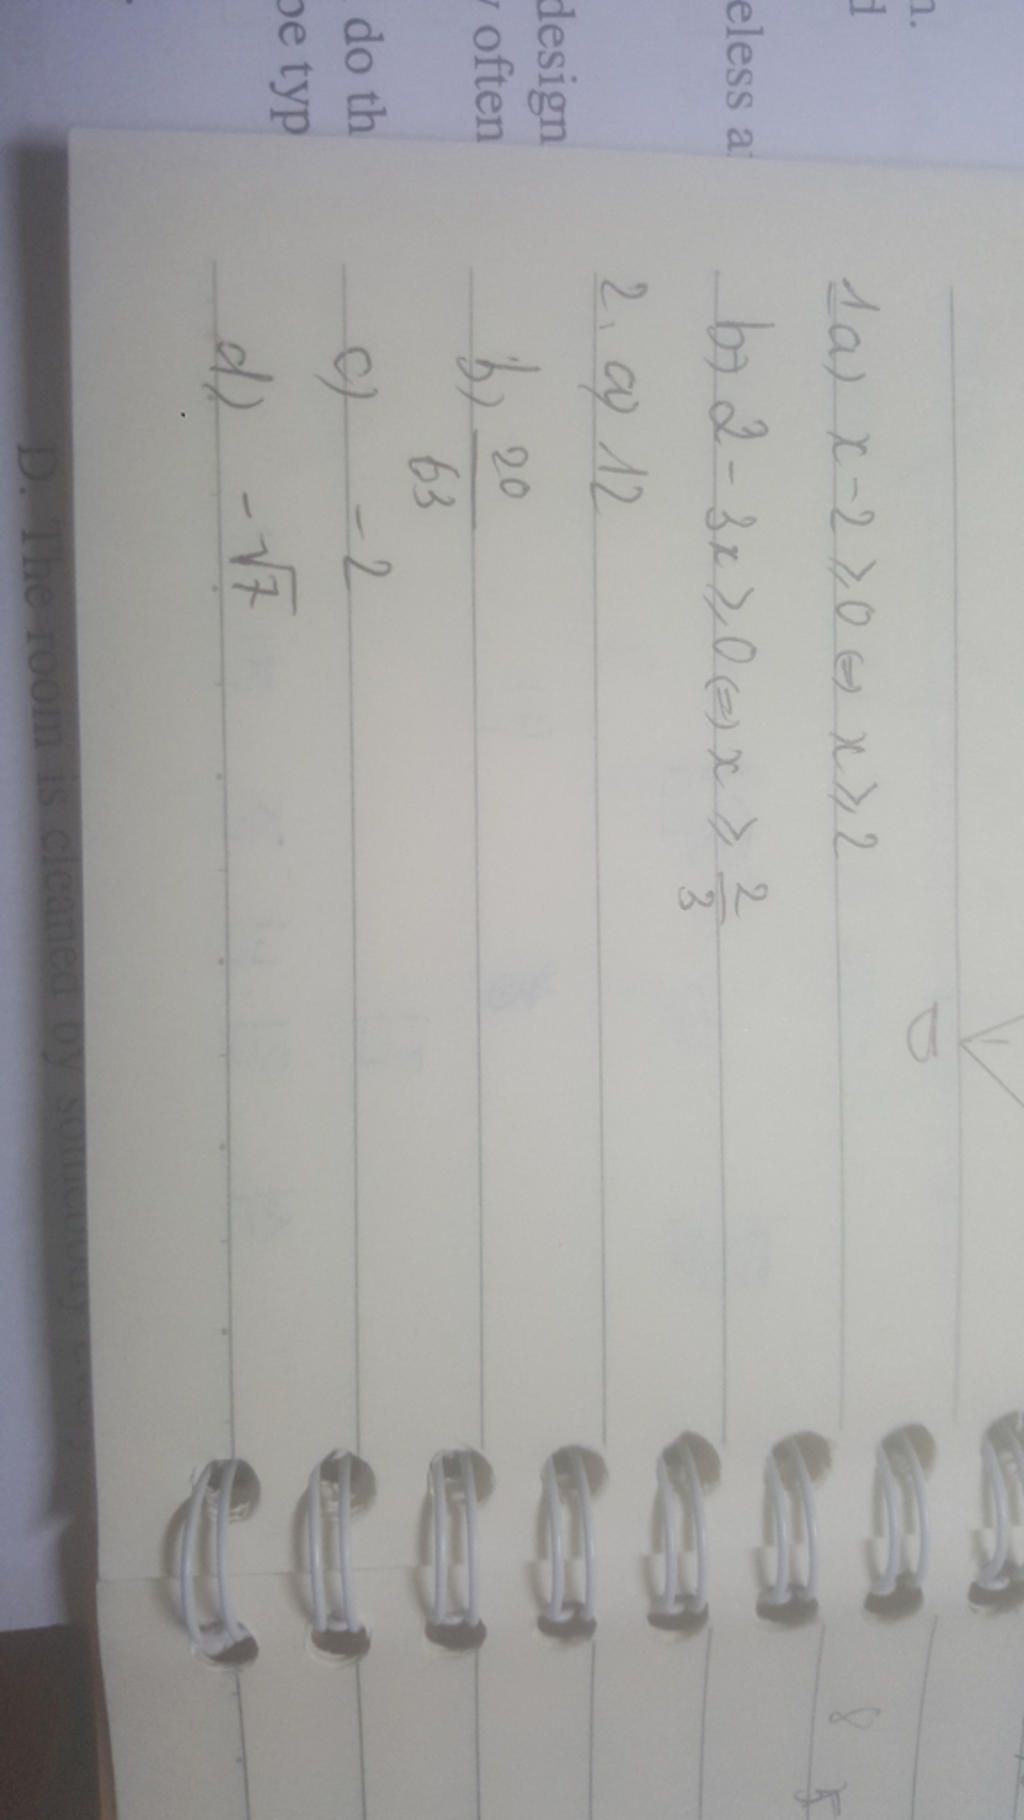 n.
d
eless a
design
y often
do th
be typ
1a) x - 2 ⩾ 0 ⇔ x ⩾ 2
b) 2 - 3x ⩾ 0 ⇔ x ⩾ 2/3
2. a) 12
b) 20/63
c) -2
d) -√7
D. The room is cleaned by somebody
8